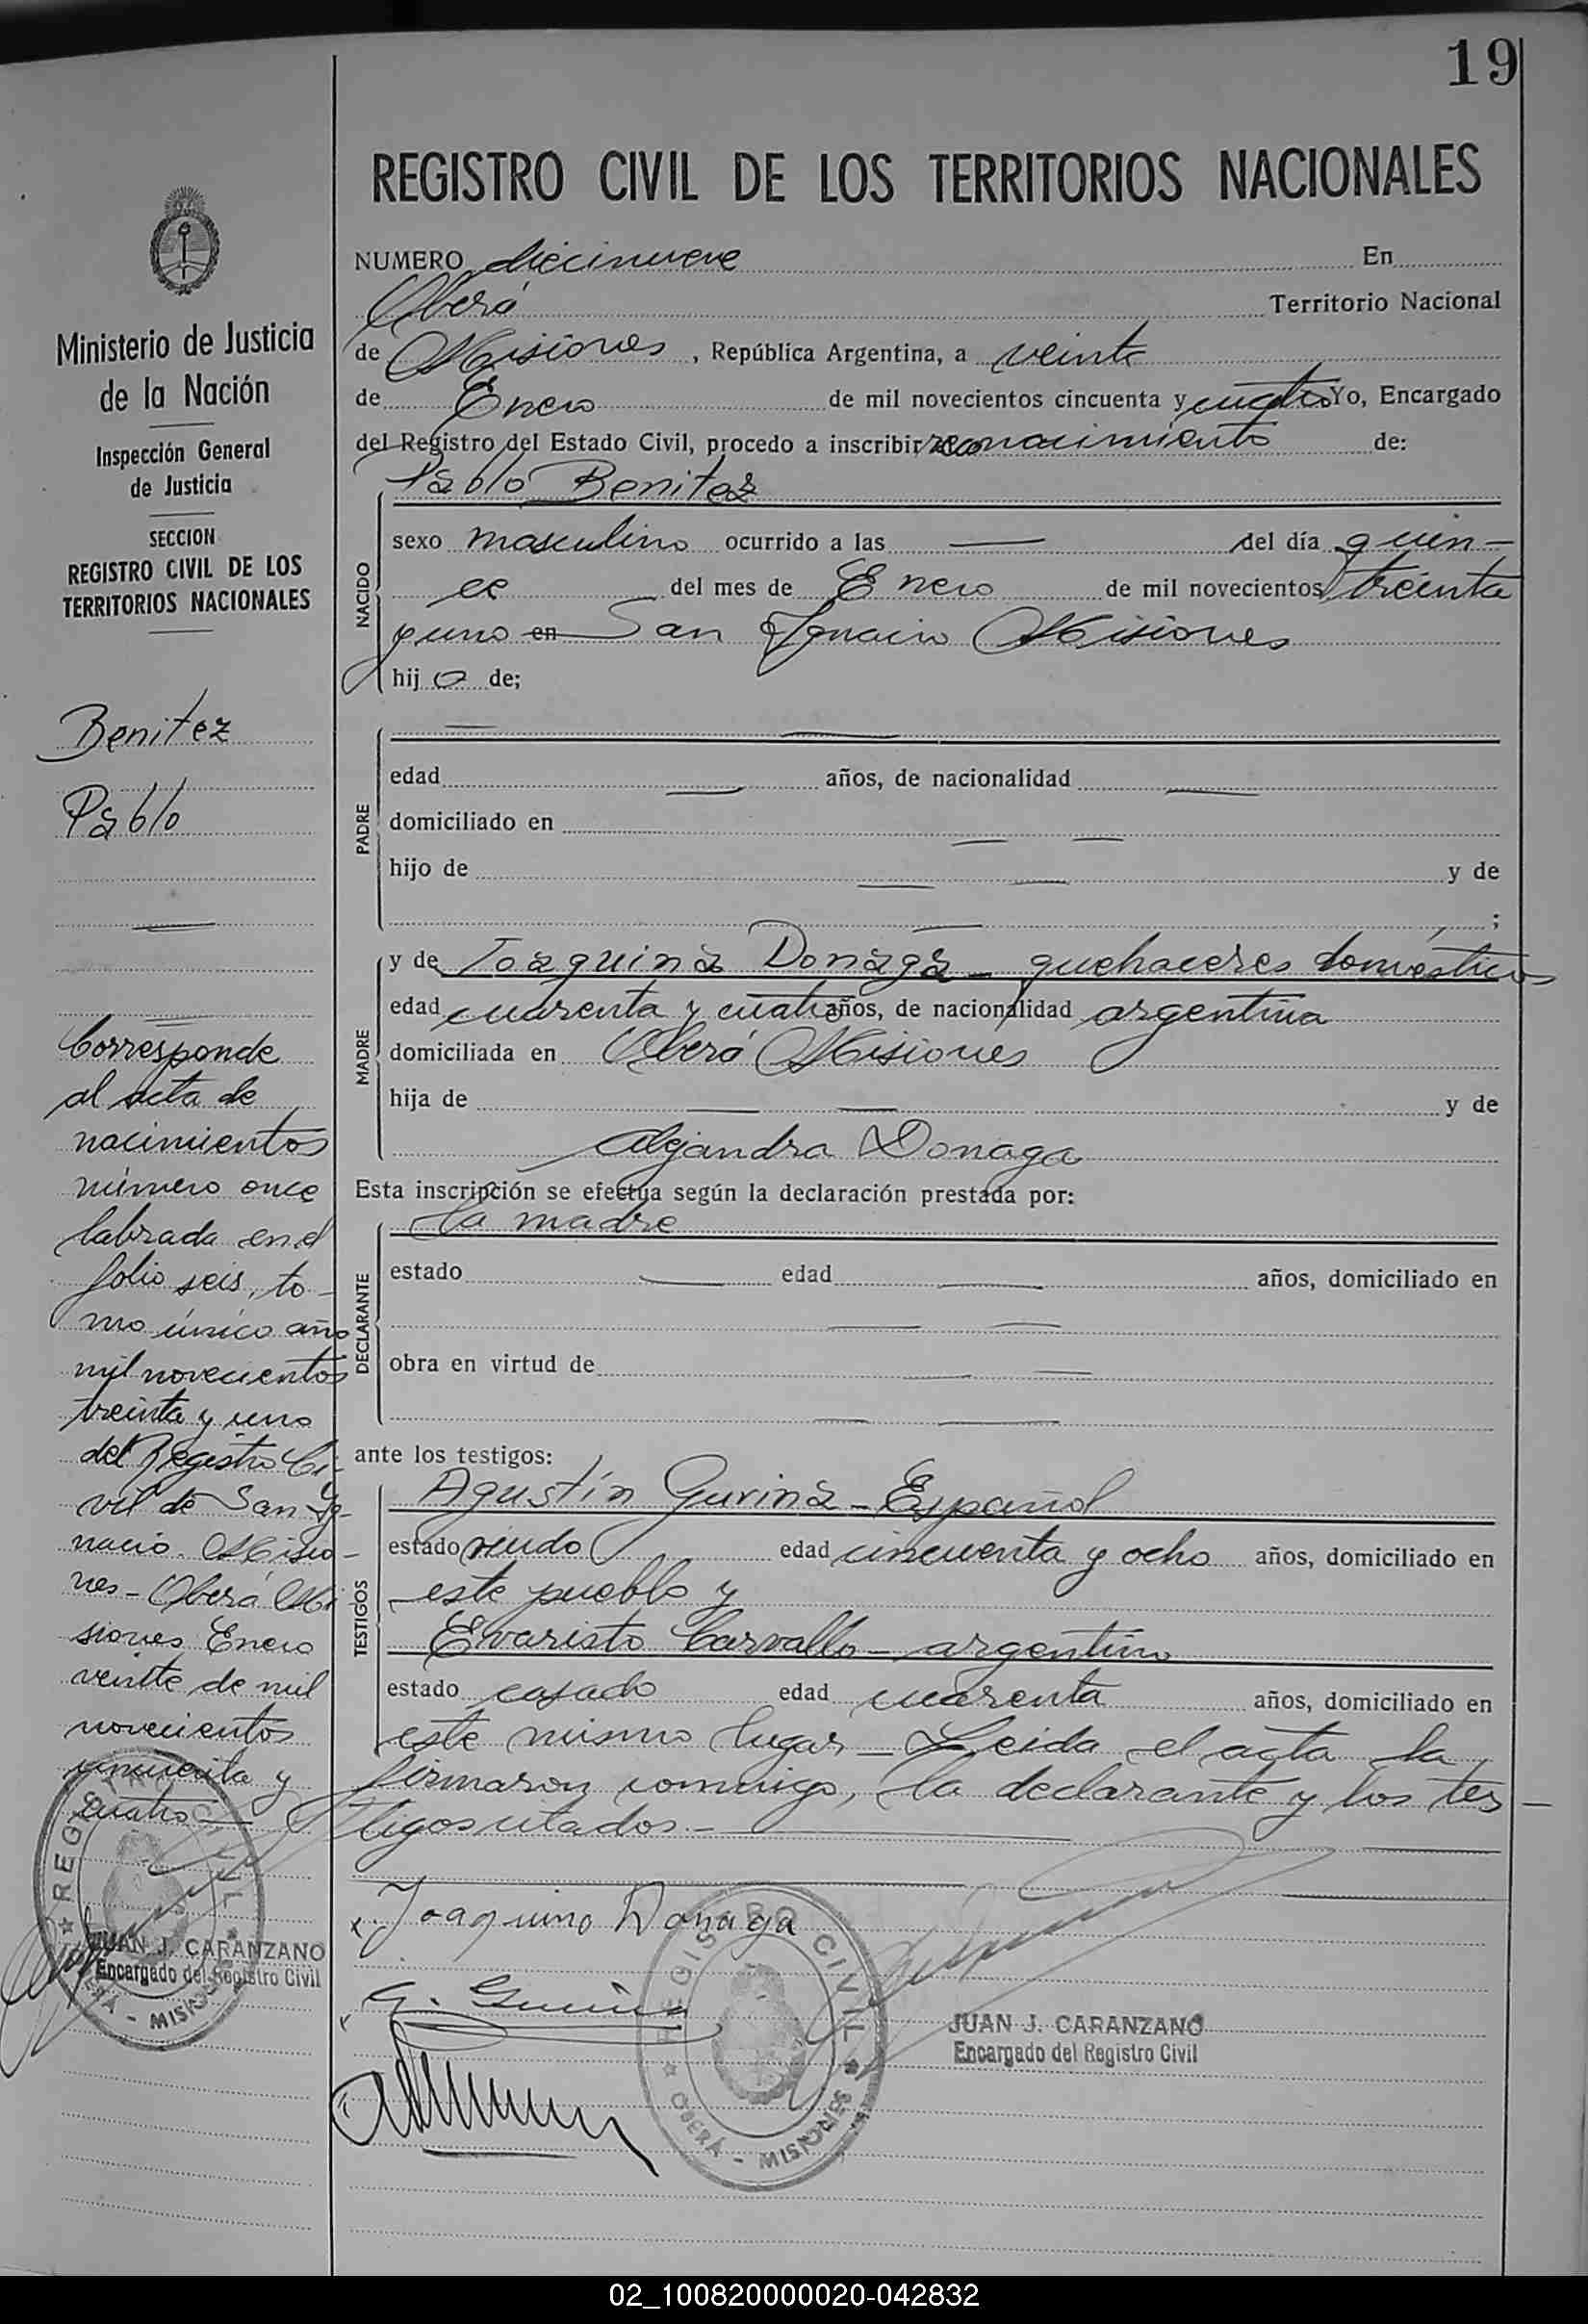 19
REGISTRO CIVIL DE LOS TERRITORIOS NACIONALES
Ministerio de Justicia
de la Nación
Inspección General
de Justicia
SECCION
REGISTRO CIVIL DE LOS
TERRITORIOS NACIONALES
Benitez
Pablo
Corresponde
al acta de
nacimientos
número once
labrada en el
folio seis, to-
mo único año
mil novecientos
treinta y uno
del Registro Ci-
vil de San Ig-
nacio. Misio-
nes - Oberá Mi
siones Enero
veinte de mil
novecientos
cincuenta y
cuatro
REGISTRO CIVIL
OBERÁ - MISIONES
JUAN J. CARANZANO
Encargado del Registro Civil
NUMERO diecinueve En
Oberá Territorio Nacional
de Misiones, República Argentina, a veinte
de Enero de mil novecientos cincuenta y cuatro Yo, Encargado
del Registro del Estado Civil, procedo a inscribir reconocimiento de:
Pablo Benitez
NACIDO
sexo masculino ocurrido a las — del día quin-
ce del mes de Enero de mil novecientos treinta
y uno en San Ignacio Misiones
hijo de;
PADRE
edad — años, de nacionalidad —
domiciliado en — —
hijo de — — y de
— ;
MADRE
y de Joaquina Donaga - quehaceres domésticos
edad cuarenta y cuatro años, de nacionalidad argentina
domiciliada en Oberá Misiones
hija de — — y de
Alejandra Donaga
Esta inscripción se efectúa según la declaración prestada por:
la madre
DECLARANTE
estado — edad — años, domiciliado en
— —
obra en virtud de — —
— —
ante los testigos:
TESTIGOS
Agustín Gurina - Español
estado viudo edad cincuenta y ocho años, domiciliado en
este pueblo y
Evaristo Carvallo - argentino
estado casado edad cuarenta años, domiciliado en
este mismo lugar - Leida el acta la
firmaron conmigo, la declarante y los tes-
tigos citados. -
x Joaquina Donaga
G. Gurina
REGISTRO CIVIL
OBERÁ - MISIONES
JUAN J. CARANZANO
Encargado del Registro Civil
02_100820000020-042832